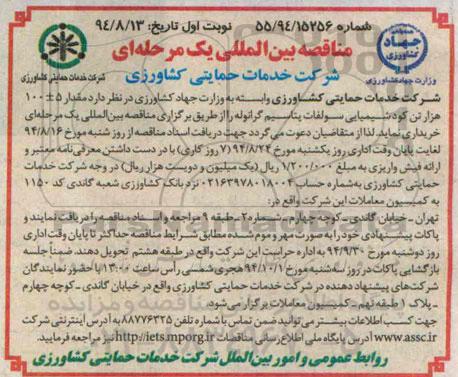 شماره ۵۵/۹۴/۱۵۲۵۶ نوبت اول تاریخ: ۹۴/۸/۱۳
مناقصه بین‌المللی یک مرحله‌ای
شرکت خدمات حمایتی کشاورزی
جهاد کشاورزی
وزارت جهاد کشاورزی
شرکت خدمات حمایتی کشاورزی
شرکت خدمات حمایتی کشاورزی وابسته به وزارت جهاد کشاورزی در نظر دارد مقدار ۵±۱۰۰
هزار تن کود شیمیایی سولفات پتاسیم گرانوله را از طریق برگزاری مناقصه بین‌المللی یک مرحله‌ای
خریداری نماید. لذا از متقاضیان دعوت می‌گردد جهت دریافت اسناد مناقصه از روز شنبه مورخ ۹۴/۸/۱۶
لغایت پایان وقت اداری روز یکشنبه مورخ ۹۴/۸/۲۴ (۷ روز کاری) با در دست داشتن معرفی‌نامه معتبر و
ارائه فیش واریزی به مبلغ ۱/۲۰۰/۰۰۰ ریال (یک میلیون و دویست هزار ریال) در وجه شرکت خدمات
حمایتی کشاورزی به‌شماره حساب ۰۳۱۶۳۹۷۸۰۱۸۰۰۴ نزد بانک کشاورزی شعبه گاندی کد ۱۱۵۰
به کمیسیون معاملات این شرکت واقع در:
تهران - خیابان گاندی - کوچه چهارم - شماره۲ - طبقه ۹ مراجعه و اسناد مناقصه را دریافت نمایند و
پاکات پیشنهادی خود را به صورت مهر و موم شده مطابق شرایط مناقصه حداکثر تا پایان وقت اداری
روز دوشنبه مورخ ۹۴/۹/۳۰ به اداره حراست این شرکت واقع در طبقه هشتم تحویل دهند. ضمناً جلسه
بازگشایی پاکات در روز سه‌شنبه مورخ ۹۴/۱۰/۱ هجری شمسی رأس ساعت ۱۳:۰۰ با حضور نمایندگان
شرکت‌های پیشنهاد دهنده در شرکت خدمات حمایتی کشاورزی واقع در خیابان گاندی - کوچه چهارم
- پلاک ۱ طبقه نهم - کمیسیون معاملات برگزار می‌شود.
جهت کسب اطلاعات بیشتر می‌توانید ضمن تماس با شماره تلفن ۸۸۷۷۶۳۲۵ به آدرس اینترنتی شرکت
www.assc.ir آدرس پایگاه ملی اطلاع رسانی مناقصات http://iets.mporg.ir نیز مراجعه فرمایید.
روابط عمومی و امور بین‌الملل شرکت خدمات حمایتی کشاورزی